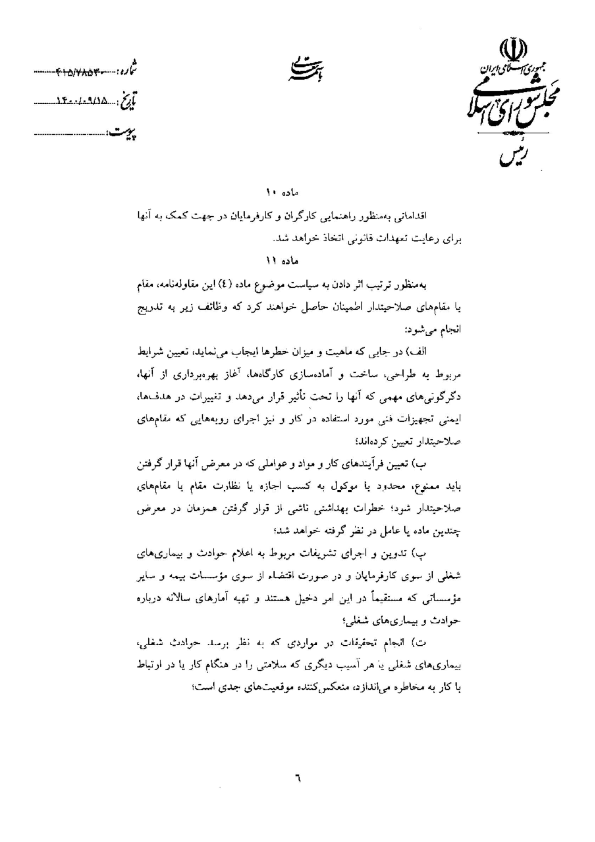 جمهوری اسلامی ایران
مجلس شورای اسلامی
رئیس
باسمه تعالی
شماره: ۴۱۵/۷۸۵۳۰
تاریخ: ۱۴۰۰/۰۹/۱۵
پیوست:
ماده ۱۰
اقداماتی به‌منظور راهنمایی کارگران و کارفرمایان در جهت کمک به آنها
برای رعایت تعهدات قانونی اتخاذ خواهد شد.
ماده ۱۱
به‌منظور ترتیب اثر دادن به سیاست موضوع ماده (۴) این مقاوله‌نامه، مقام
یا مقام‌های صلاحیتدار اطمینان حاصل خواهند کرد که وظائف زیر به تدریج
انجام می‌شود:
الف) در جایی که ماهیت و میزان خطرها ایجاب می‌نماید، تعیین شرایط
مربوط به طراحی، ساخت و آماده‌سازی کارگاه‌ها، آغاز بهره‌برداری از آنها،
دگرگونی‌های مهمی که آنها را تحت تأثیر قرار می‌دهد و تغییرات در هدف‌ها،
ایمنی تجهیزات فنی مورد استفاده در کار و نیز اجرای رویه‌هایی که مقام‌های
صلاحیتدار تعیین کرده‌اند؛
ب) تعیین فرآیندهای کار و مواد و عواملی که در معرض آنها قرار گرفتن
باید ممنوع، محدود یا موکول به کسب اجازه یا نظارت مقام یا مقام‌های
صلاحیتدار شود؛ خطرات بهداشتی ناشی از قرار گرفتن همزمان در معرض
چندین ماده یا عامل در نظر گرفته خواهد شد؛
پ) تدوین و اجرای تشریفات مربوط به اعلام حوادث و بیماری‌های
شغلی از سوی کارفرمایان و در صورت اقتضاء از سوی مؤسسات بیمه و سایر
مؤسساتی که مستقیماً در این امر دخیل هستند و تهیه آمارهای سالانه درباره
حوادث و بیماری‌های شغلی؛
ت) انجام تحقیقات در مواردی که به نظر برسد حوادث شغلی،
بیماری‌های شغلی یا هر آسیب دیگری که سلامتی را در هنگام کار یا در ارتباط
با کار به مخاطره می‌اندازد، منعکس‌کننده موقعیت‌های جدی است؛
۶